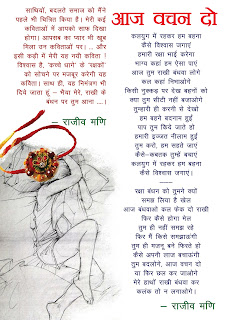 साथियों, बदलते समाज को मैंने
पहले भी चित्रित किया है। मेरी कई
कविताओं में आपको साफ दिखा
होगा। आपसब का प्यार भी खूब
मिला उन कविताओं पर। ... और
इसी कड़ी में मेरी यह नयी कविता !
विश्वास है, 'कच्चे धागे' के 'रक्षकों'
को सोचने पर मजबूर करेगी यह
कविता। साथ ही, यह निमंत्रण भी
दिये जाता हूं – भैया मेरे, राखी के
बंधन पर तुम आना ....।
– राजीव मणि
आज वचन दो
कलयुग में रहकर हम बहना
कैसे विश्वास जगाएं
हमारी रक्षा भाई करेगा
भाग्य कहां हम ऐसा पाएं
आज तुम राखी बंधवा लोगे
कल कहां निभाओगे
किसी नुक्कड़ पर देख बहनों को
क्या तुम सीटी नहीं बजाओगे
तुम्हारी ही करनी से देखो
हम बहने बदनाम हुईं
पाप तुम किये जाते हो
हमारी इज्जत नीलाम हुई
तुम करो, हम सहते जाएं
कैसे–कबतक तुम्हें बचाएं
कलयुग में रहकर हम बहना
कैसे विश्वास जगाएं।
रक्षा बंधन को तुमने क्यों
समझ लिया है खेल
आज बंधवाओ कल फेंक दो राखी
फिर कैसे होगा मेल
तुम ही नहीं समझ रहे
फिर मैं किसे समझाऊंगी
तुम ही मजनू बने फिरते हो
कैसे अपनी लाज बचाऊंगी
तुम बदलोगे, आज वचन दो
या फिर छल कर जाओगे
मेरे हाथों राखी बंधवा कर
कलंक तो न लगाओगे।
– राजीव मणि